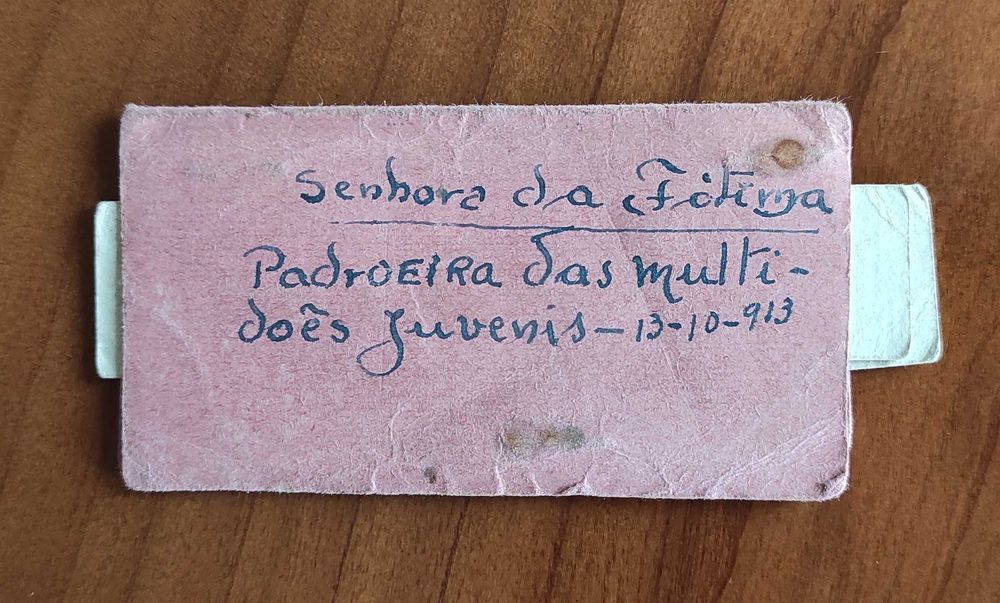 Senhora da Fátima
PadroEIRA das multi-
doês Juvenis-13-10-913